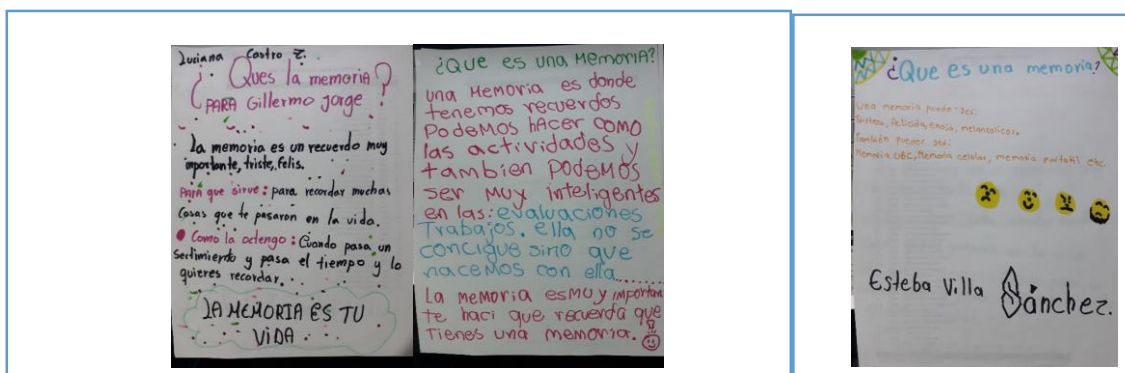 Luciana Castro Z.
¿Ques la memoria
PARA Gillermo Jorge?
la memoria es un recuerdo muy
importante, triste, felis.
PARA que sirve: para recordar muchas
cosas que te pasaron en la vida.
Como la octengo: Cuando pasa un
sertimiento y pasa el tiempo y lo
quieres recordar.
LA MEMORIA ES TU
VIDA
¿QUE ES UNA MEMORIA?
una MEMORIA es donde
tenemos recuerdos
PODEMOS HACER COMO
las actividades y
tambien PODEMOS
ser MUY inteligentes
en las: evaluaciones
Trabajos. ella no se
concigue sino que
nacemos con ella
La memoria es MUY importan
te haci que recuerda que
Tienes una memoria.
¿Que es una memoria?
Una memoria puede ser:
tristeza, felicida, enojo, melancolicos.
También pueden ser:
Memoria USC, Memoria celular, memoria portatil etc
Esteba Villa Sánchez.